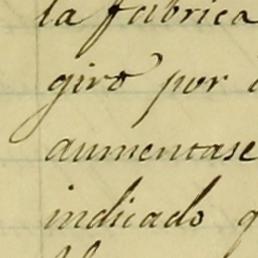 la fabrica
giro por
aumentase
indicado q